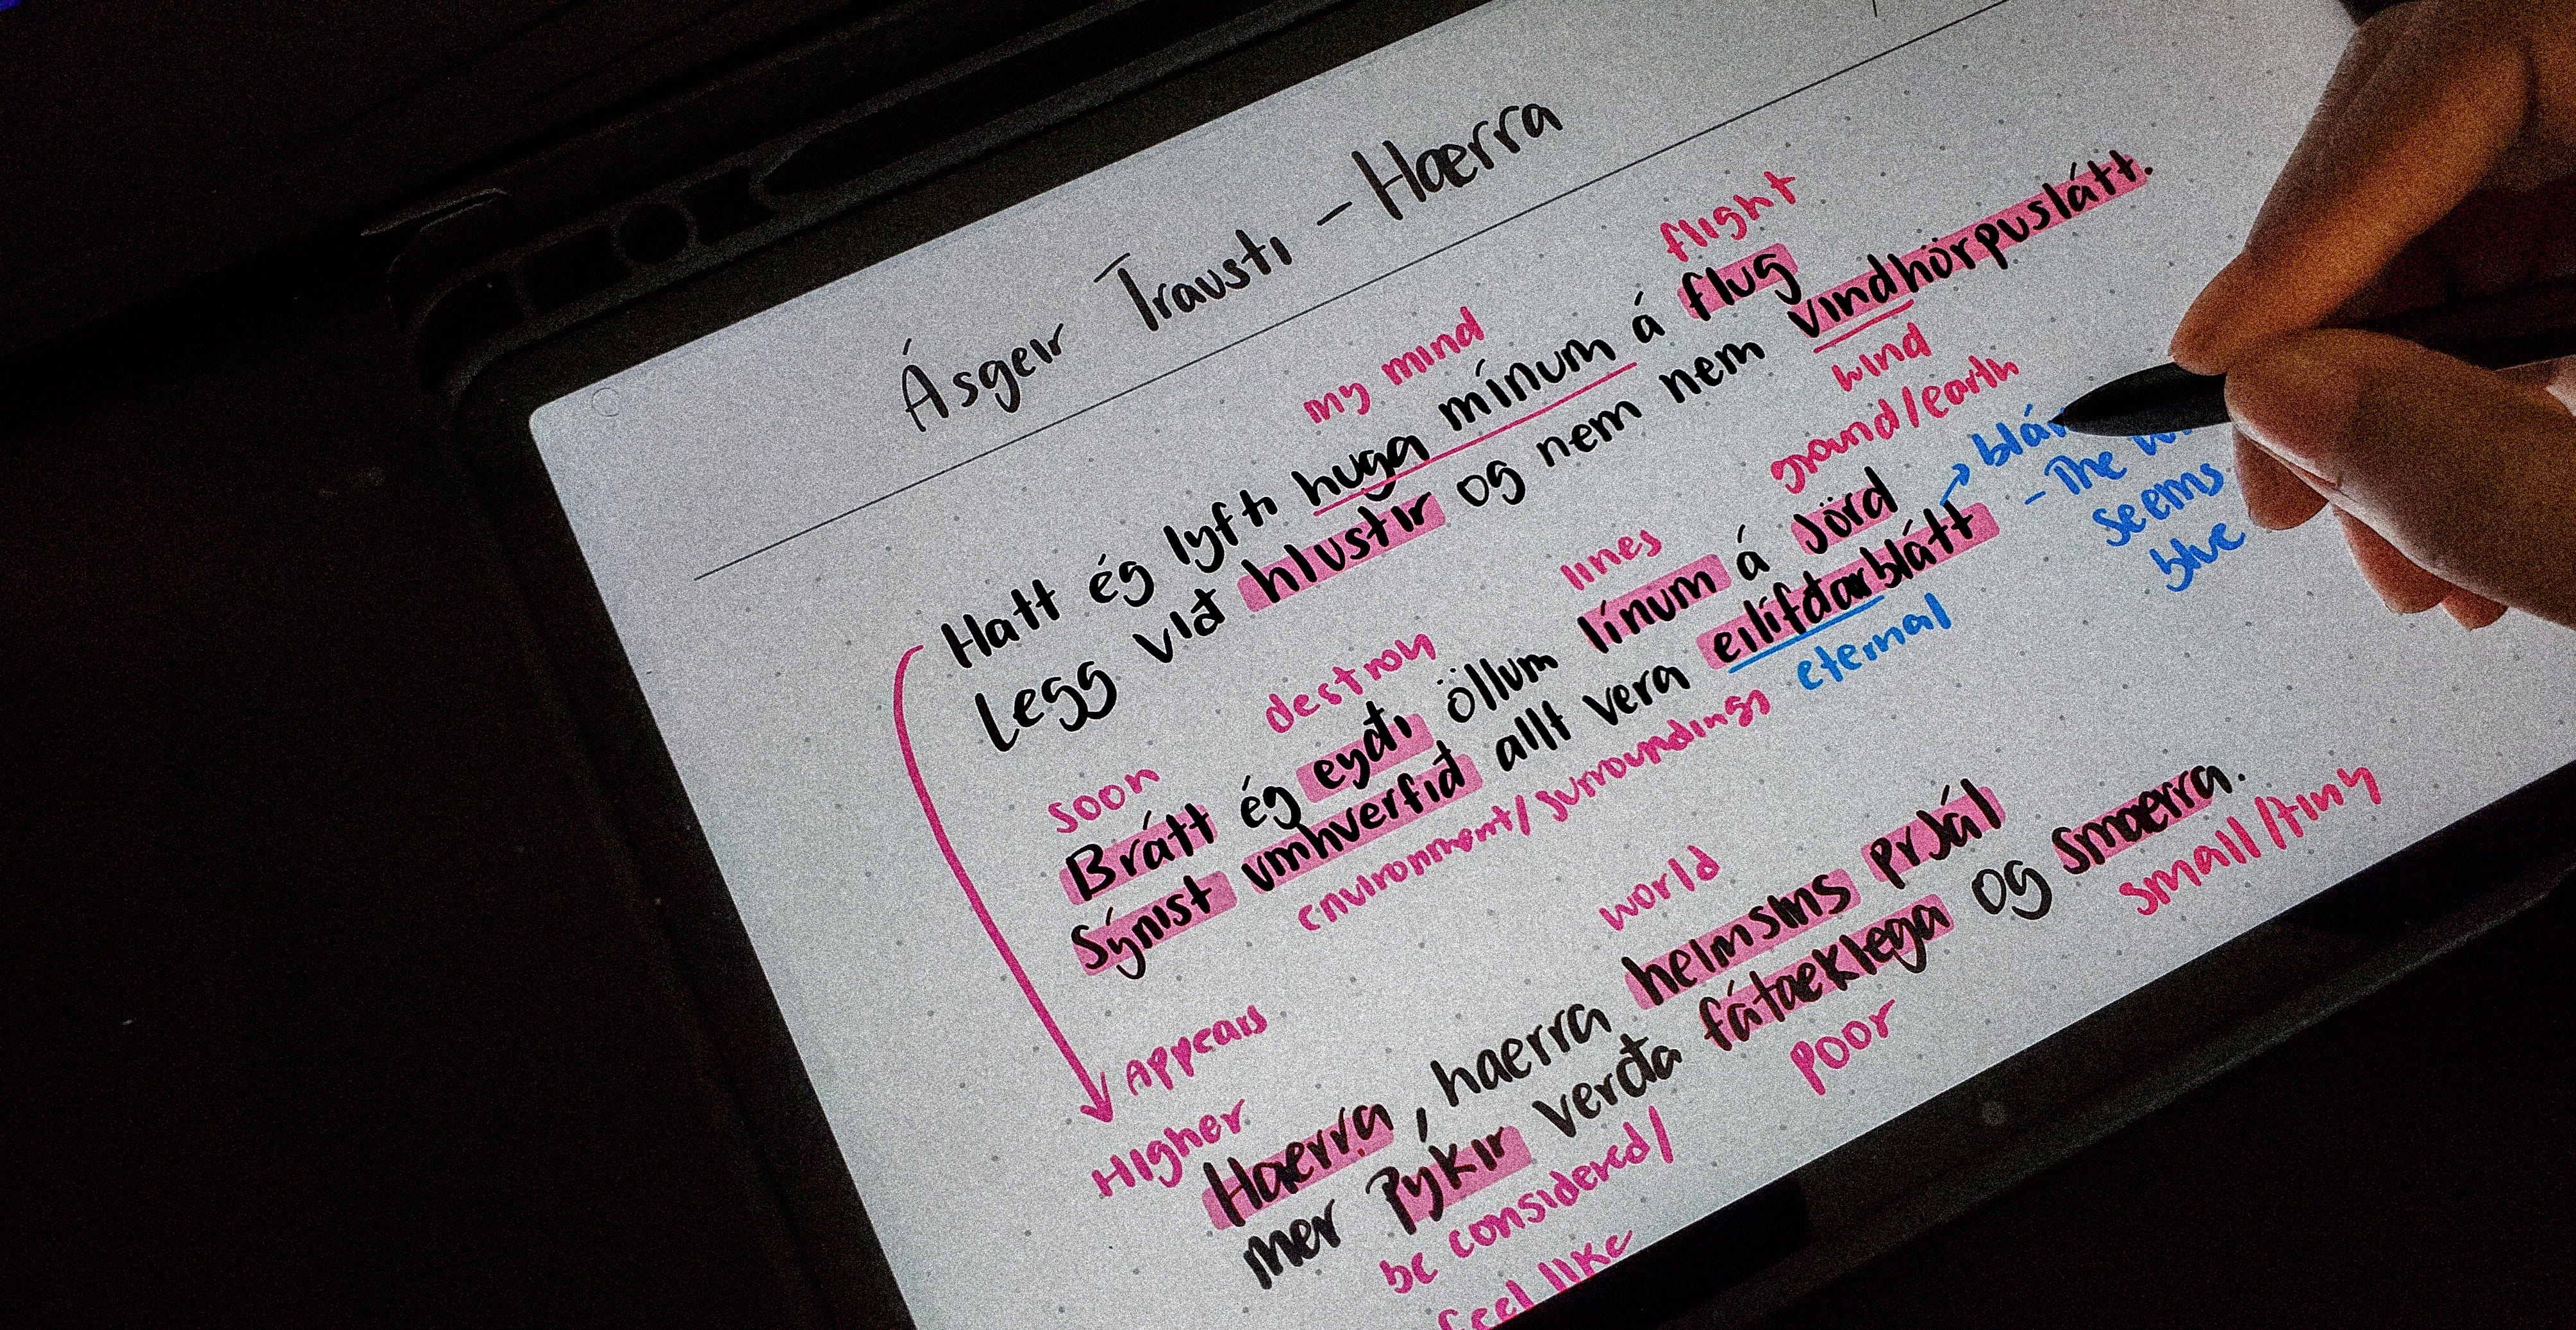 Ásgeir Trausti - Haerra
flight
my mind
Hatt ég lyfti huga mínum á flug
Legg við hlustir og nem nem vindhörpuslátt.
wind
ground/earth
lines
destroy
soon
Brátt ég eyði öllum línum á Jörd
Sýnist umhverfið allt vera eilífdarblátt
- The
seems
blue
eternal
environment/surroundings
Appears
world
Higher
Haerra, haerra heimsins prJál
mer Þykir verða fátaeklega og smaerra.
small/tiny
poor
be considered/
feel like